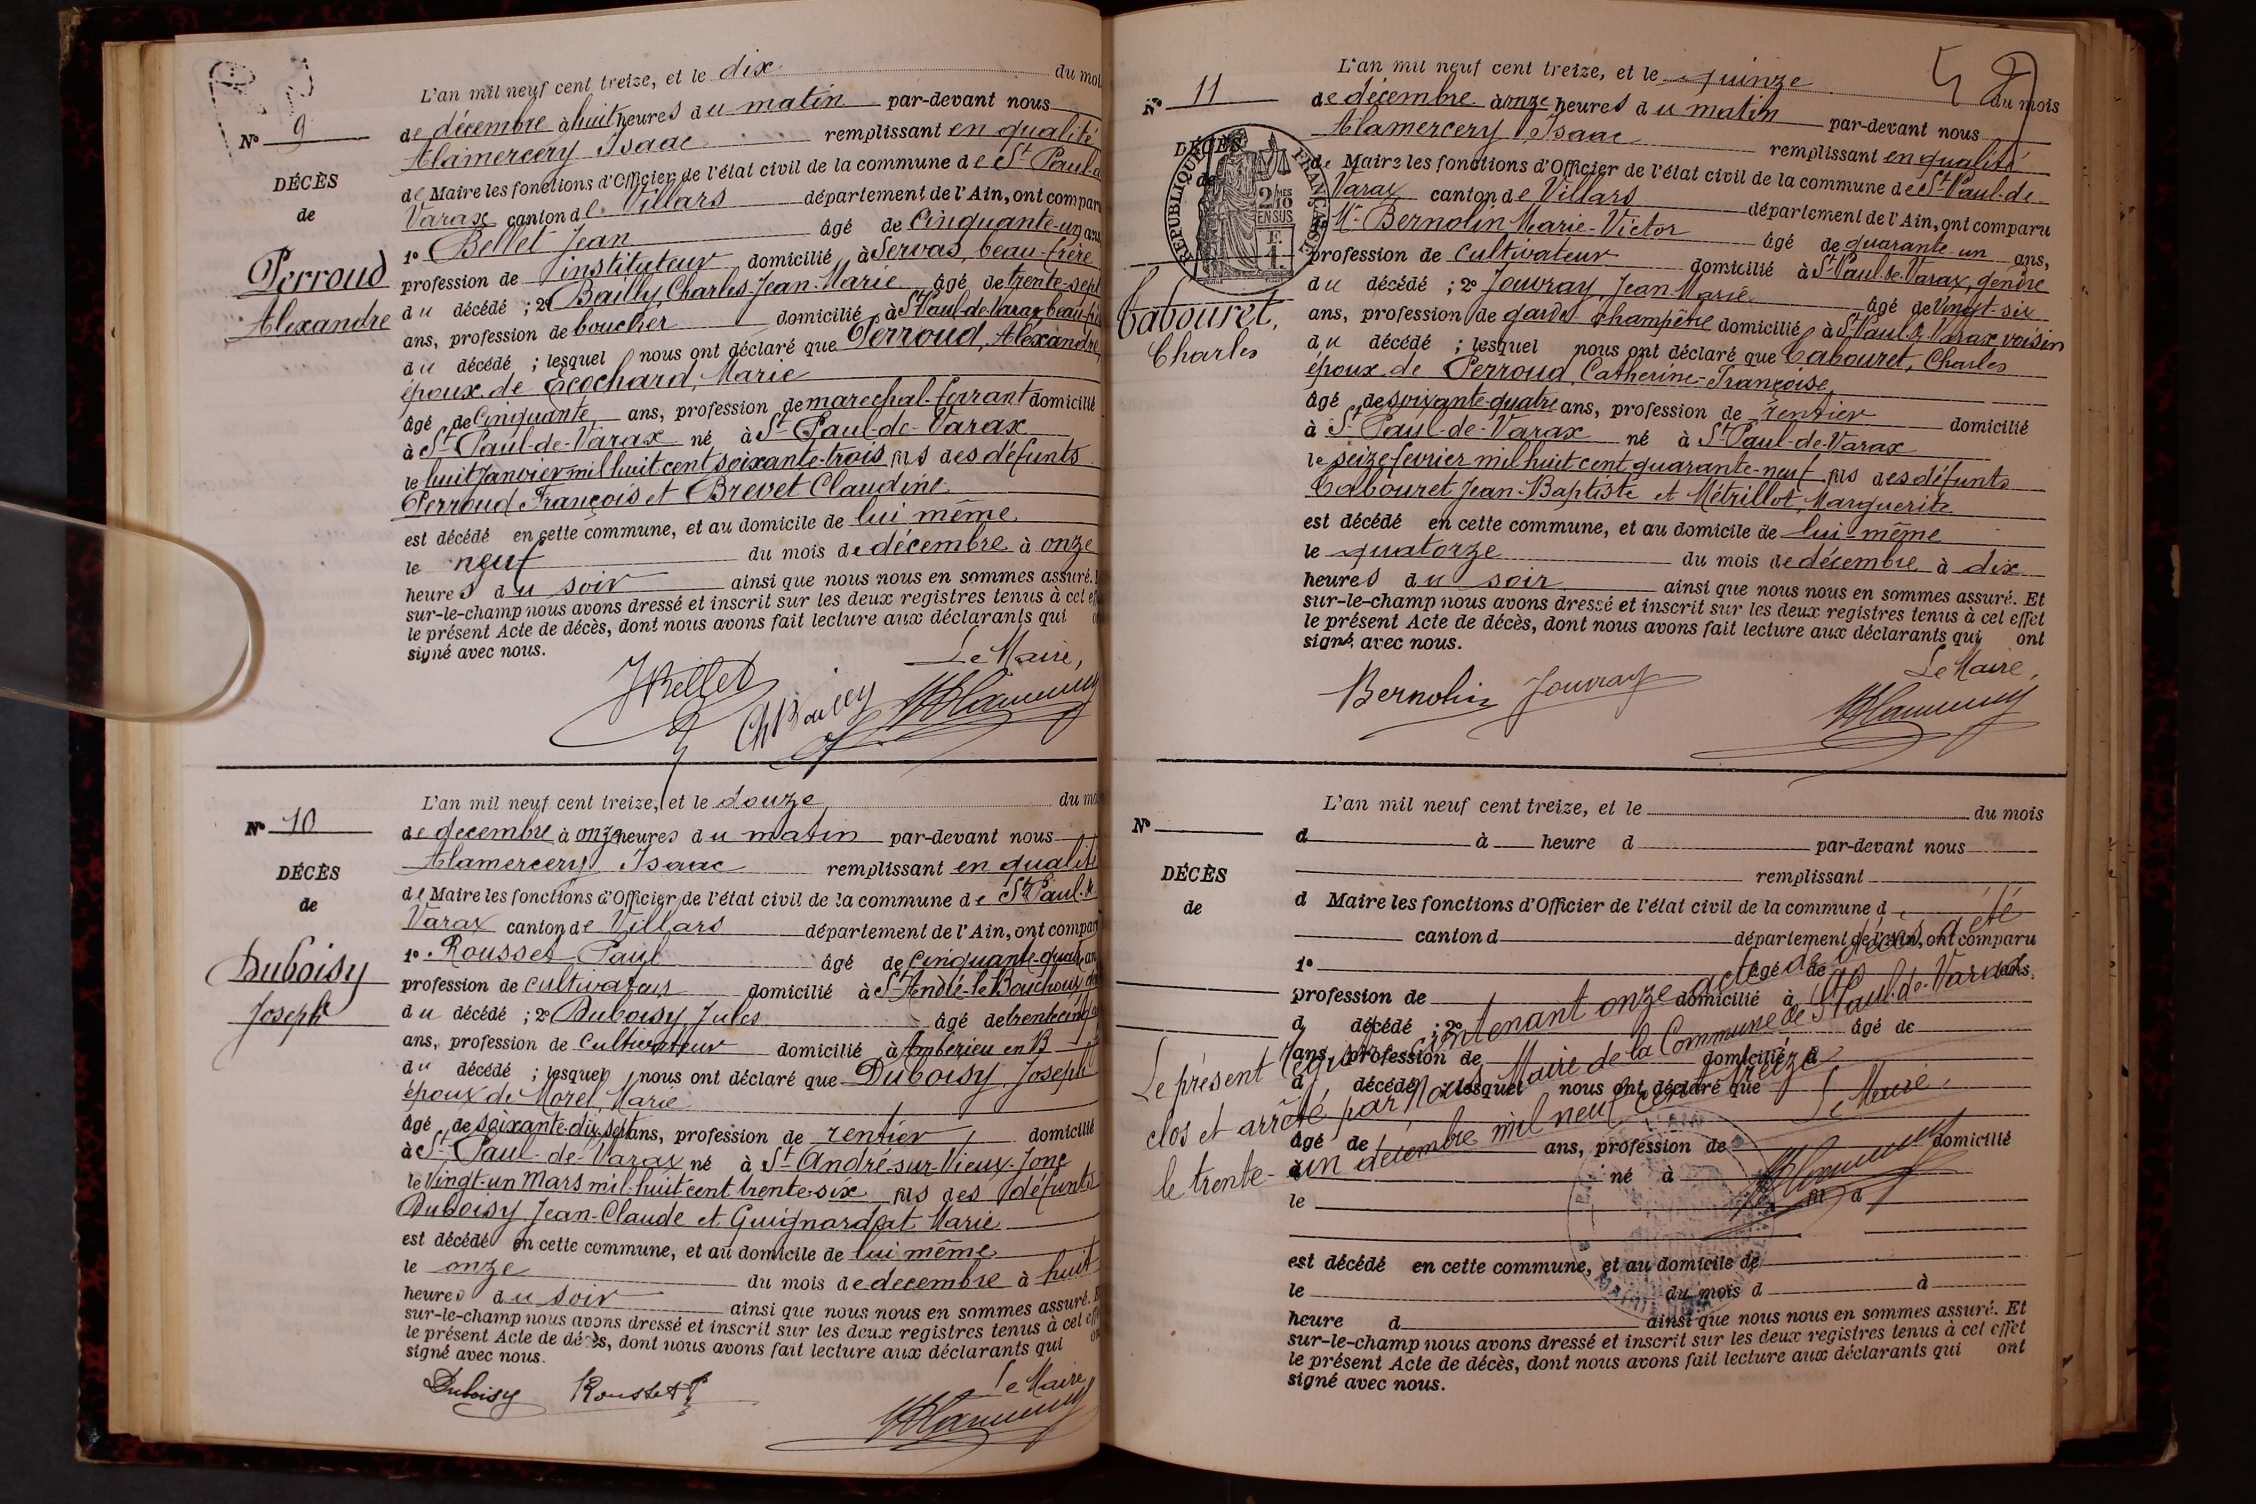 L'an mil neuf cent treize, et le dix du moi
N° 9
de décembre à huit heures du matin par-devant nous
Alamercery Isaac remplissant en qualité
DÉCÈS
de Maire les fonctions d'Officier de l'état civil de la commune de St Paul-d
de
Varax canton de Villars département de l'Ain, ont compar
1° Bellet Jean âgé de cinquante-un ans,
Perroud
profession de instituteur domicilié à Servas, beau-frère
Alexandre
du décédé ; 2° Bailly Charles Jean-Marie âgé de trente-sept
ans, profession de boucher domicilié à St Paul-de-Varax beau-frè
du décédé ; lesquel nous ont déclaré que Perroud, Alexandre,
époux de Ecochard, Marie
âgé de cinquante ans, profession de marechal-ferrant domicilié
à St Paul-de-Varax né à St Paul-de-Varax
le huit Janvier mil huit cent soixante-trois fils des défunts
Perroud François et Brevet Claudine
est décédé en cette commune, et au domicile de lui même
le neuf du mois de décembre à onze
heures du soir ainsi que nous nous en sommes assuré.
sur-le-champ nous avons dressé et inscrit sur les deux registres tenus à cet eff
le présent Acte de décès, dont nous avons fait lecture aux déclarants qui
signé avec nous.
Le Maire,
JBellet ChBailly
L'an mil neuf cent treize, et le douze du mo
N° 10
de decembre à onze heures du matin par-devant nous
Alamercery Isaac remplissant en qualité
DÉCÈS
de Maire les fonctions d'Officier de l'état civil de la commune de St Paul-de
de
Varax canton de Villars département de l'Ain, ont compar
1° Rousset Paul âgé de cinquante-quatre an
Duboisy
profession de cultivateur domicilié à St André-le-Bouchoux
Joseph
du décédé ; 2° Duboisy Jules âgé de trente cinq
ans, profession de Cultivateur domicilié à Amberieu en B
du décédé ; lesquel nous ont déclaré que Duboisy Joseph
époux de Morel Marie
âgé de soixante-dix sept ans, profession de rentier domicilié
à St Paul-de-Varax né à St André-sur-Vieux-Jonc
le Vingt-un Mars mil-huit cent trente-six fils des défunts
Duboisy Jean-Claude et Guignardat Marie
est décédé en cette commune, et au domicile de lui même
le onze du mois de decembre à huit
heures du soir ainsi que nous nous en sommes assuré. E
sur-le-champ nous avons dressé et inscrit sur les deux registres tenus à cet effe
le présent Acte de décès, dont nous avons fait lecture aux déclarants qui on
signé avec nous.
Le Maire
Duboisy Rousset P
L'an mil neuf cent treize, et le quinze du mois
N° 11
de décembre à onze heures du matin par-devant nous
Alamercery Isaac remplissant en qualité
DÉCÈS
de Maire les fonctions d'Officier de l'état civil de la commune de St Paul-de-
de
RÉPUBLIQUE FRANÇAISE
2/10 MES
EN SUS
F.
1.
Varax canton de Villars département de l'Ain, ont comparu
1° Mr Bernolin Marie-Victor âgé de quarante-un ans,
profession de cultivateur domicilié à St Paul-de-Varax, gendre
Cabouret,
Charles
du décédé ; 2° Jouvray Jean Marie âgé de Vingt-six
ans, profession de garde champêtre domicilié à St Paul de Varax voisin
du décédé ; lesquel nous ont déclaré que Cabouret, Charles
époux de Perroud, Catherine-Françoise
âgé de soixante-quatre ans, profession de rentier domicilié
à St Paul-de-Varax né à St Paul-de-Varax
le seize fevrier mil huit cent quarante-neuf fils des défunts
Cabouret Jean-Baptiste et Métrillot, Marguerite
est décédé en cette commune, et au domicile de lui-même
le quatorze du mois de décembre à dix
heures du soir ainsi que nous nous en sommes assuré. Et
sur-le-champ nous avons dressé et inscrit sur les deux registres tenus à cet effet
le présent Acte de décès, dont nous avons fait lecture aux déclarants qui ont
signé avec nous.
Le Maire,
Bernolin Jouvray
L'an mil neuf cent treize, et le du mois
N°
d à heure d par-devant nous
remplissant
DÉCÈS
d Maire les fonctions d'Officier de l'état civil de la commune d
de
canton d département de l'Ain, ont comparu
1° âgé de ans,
profession de domicilié à
d décédé ; 2° âgé de
ans, profession de domicilié à
d décédé ; lesquel nous ont déclaré que
Le présent registre contenant onze actes de décès a été
clos et arrêté par Nous Maire de la Commune de St Paul-de-Varax
le trente-un décembre mil neuf cent treize
Le Maire,
âgé de ans, profession de domicilié
à né à
le fil d
est décédé en cette commune, et au domicile de
le du mois d à
heure d ainsi que nous nous en sommes assuré. Et
sur-le-champ nous avons dressé et inscrit sur les deux registres tenus à cet effet
le présent Acte de décès, dont nous avons fait lecture aux déclarants qui ont
signé avec nous.